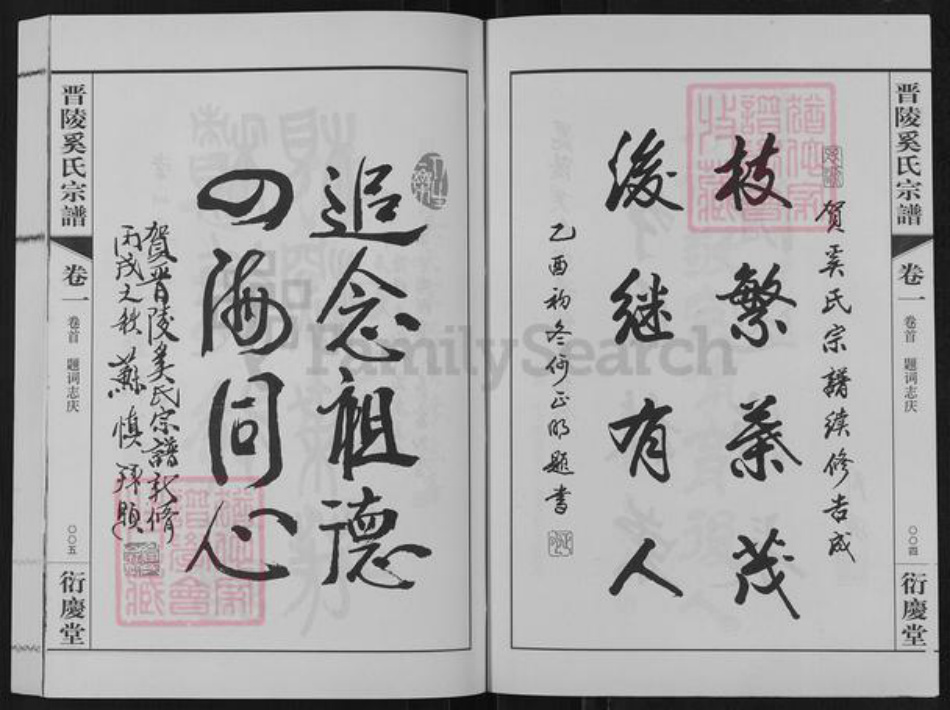 晋陵奚氏宗譜
卷一
卷首 題词志庆
〇〇四
衍慶堂
贺奚氏宗譜续修告成
枝繁葉茂
後继有人
乙酉初冬何正明题書
追念祖德
四海同心
賀晋陵奚氏宗譜新修
丙戌之秋 蘇慎拜題
晋陵奚氏宗譜
卷一
卷首 題词志庆
〇〇五
衍慶堂
FamilySearch